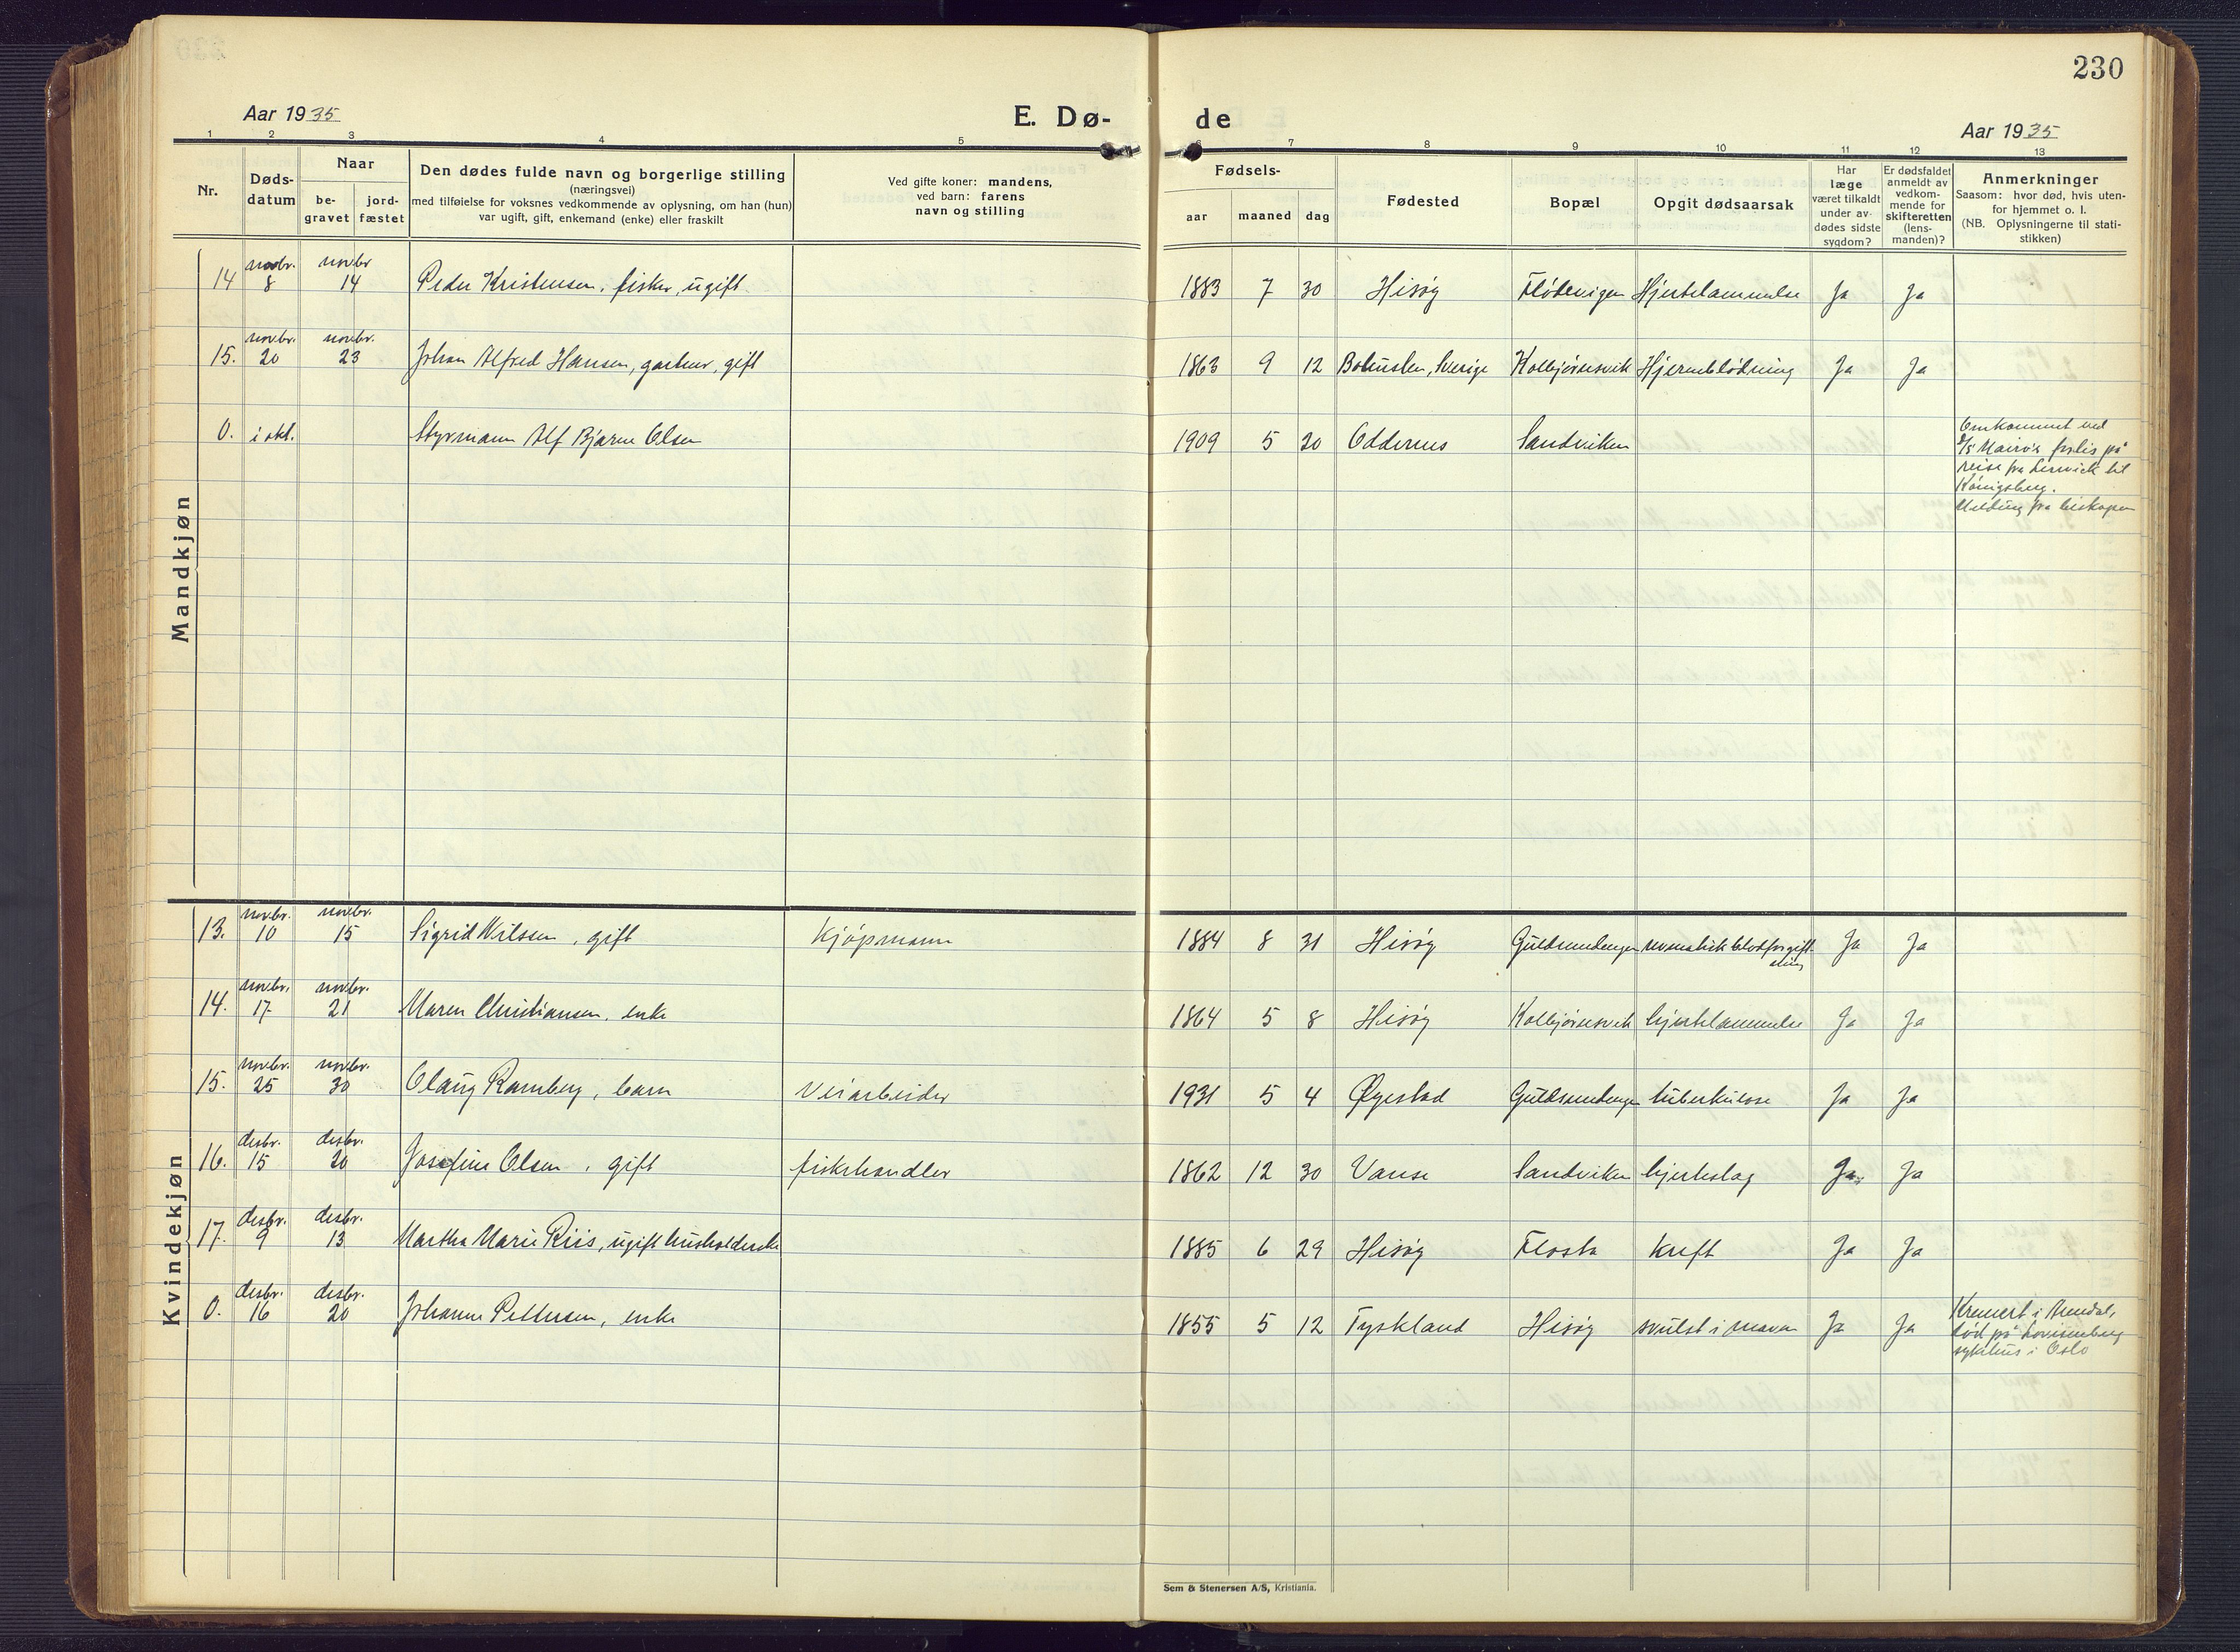 230
Aar 1935
E. Dø-
de
Aar 1935
1 2 3 4 5 6 7 8 9 10 11 12 13
Nr.
Døds-
datum
Naar
be-
gravet
jord-
fæstet
Den dødes fulde navn og borgerlige stilling
(næringsvei)
med tilføielse for voksnes vedkommende av oplysning, om han (hun)
var ugift, gift, enkemand (enke) eller fraskilt
Ved gifte koner: mandens,
ved barn: farens
navn og stilling
Fødsels-
aar maaned dag
Fødested
Bopæl
Opgit dødsaarsak
Har
læge
været tilkaldt
under av-
dødes sidste
sygdom?
Er dødsfaldet
anmeldt av
vedkom-
mende for
skifteretten
(lens-
manden)?
Anmerkninger
Saasom: hvor død, hvis uten-
for hjemmet o. l.
(NB. Oplysningerne til stati-
stikken)
Mandkjøn
novbr. novbr
14 8 14 Peder Kristensen, fisker, ugift 1883 7 30 Hisøy Flødevigen Hjertelammelse Ja Ja
novbr. novbr.
15. 20 23 Johan Alfred Hansen, gartner, gift 1863 9 12 Bohuslen, Sverige Kolbjørnsvik Hjerneblødning Ja Ja
0. i okt. Styrmann Alf Bjarne Olsen 1909 5 20 Oddernes Sandviken
Omkommet ved
forlis på
reise fra Lerwick til
Königsberg.
Melding fra biskopen
Kvindekjøn
novbr. novbr.
13. 10 15 Sigrid Nilssen, gift Kjøpmann 1884 8 31 Hisøy Guldsmedengen revmatisk blodforgift-
ning Ja Ja
novbr. novbr.
14. 17 21 Maren Christiansen, enke 1864 5 8 Hisøy Kolbjørnsvik hjertelammelse Ja Ja
novbr. novbr.
15. 25 30 Olaug Ramberg, barn Veiarbeider 1931 5 4 Øyestad Guldsmedengen tuberkulose Ja Ja
desbr. desbr.
16. 15 20 Josefine Olsen, gift fiskehandler 1862 12 30 Vanse Sandviken hjerteslag Ja Ja
desbr. desbr.
17. 9 13 Martha Marie Riis, ugift husholderske 1885 6 29 Hisøy Flosta Kreft Ja Ja
desbr. desbr.
0. 16 20 Johanne Pettersen, enke 1855 5 12 Tyskland Hisøy svulst i maven Ja Ja
Kremert i Arendal,
død på Lovisenberg
sykehus i Oslo
Sem & Stenersen A/S, Kristiania.